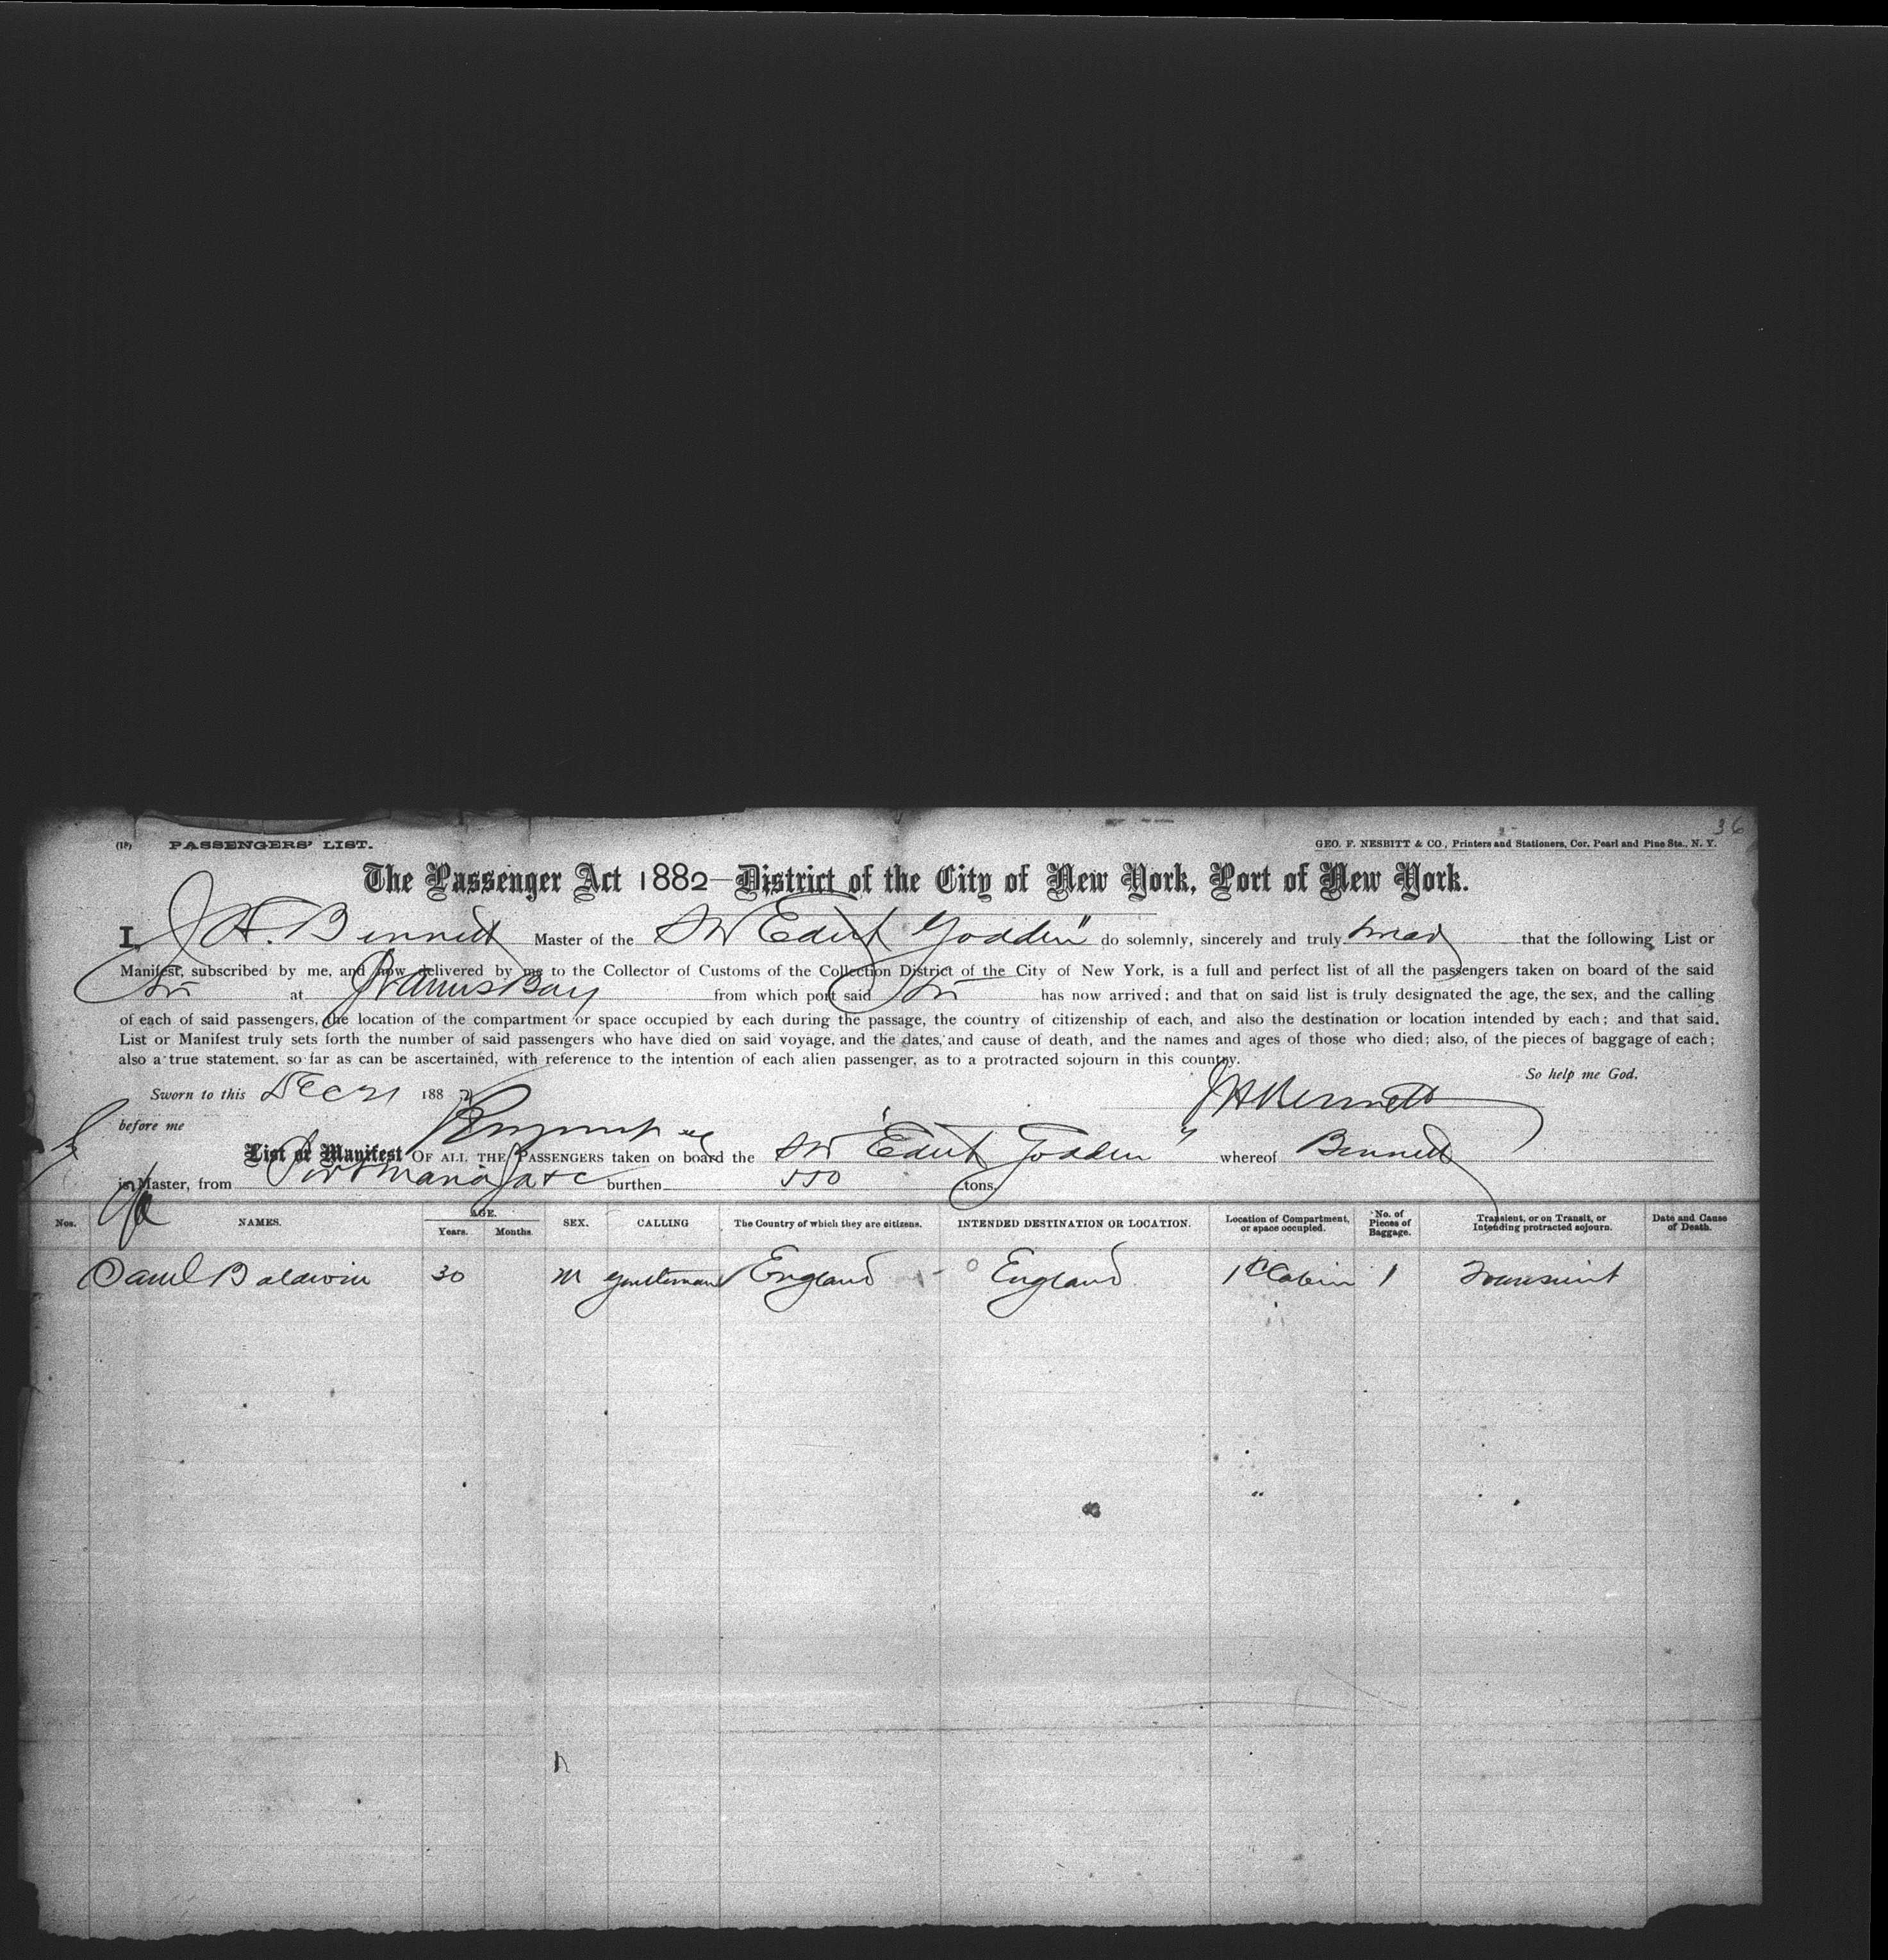 36
(18) PASSENGERS' LIST. GEO. F. NESBITT & CO., Printers and Stationers, Cor. Pearl and Pine Sts., N. Y.
The Passenger Act 1882—District of the City of New York, Port of New York.
I, J H. Bennett Master of the Str "Edith Godden" do solemnly, sincerely and truly swear that the following List or
Manifest, subscribed by me, and now delivered by me to the Collector of Customs of the Collection District of the City of New York, is a full and perfect list of all the passengers taken on board of the said
Str at from which port said Str has now arrived; and that on said list is truly designated the age, the sex, and the calling
of each of said passengers, the location of the compartment or space occupied by each during the passage, the country of citizenship of each, and also the destination or location intended by each; and that said.
List or Manifest truly sets forth the number of said passengers who have died on said voyage, and the dates, and cause of death, and the names and ages of those who died; also, of the pieces of baggage of each;
also a true statement, so far as can be ascertained, with reference to the intention of each alien passenger, as to a protracted sojourn in this country.
So help me God.
Sworn to this Dec 21 188 JHBennett
before me
List or Manifest OF ALL THE PASSENGERS taken on board the Str "Edith Godden" whereof Bennett
is Master, from Port Maria Ja &c burthen 550 tons.
Nos. NAMES. AGE. Years. Months. SEX. CALLING The Country of which they are citizens. INTENDED DESTINATION OR LOCATION. Location of Compartment, or space occupied. No. of Pieces of Baggage. Transient, or on Transit, or Intending protracted sojourn. Date and Cause of Death.
Saml Baldwin 30 M Gentleman England England 1st Cabin 1 Transient